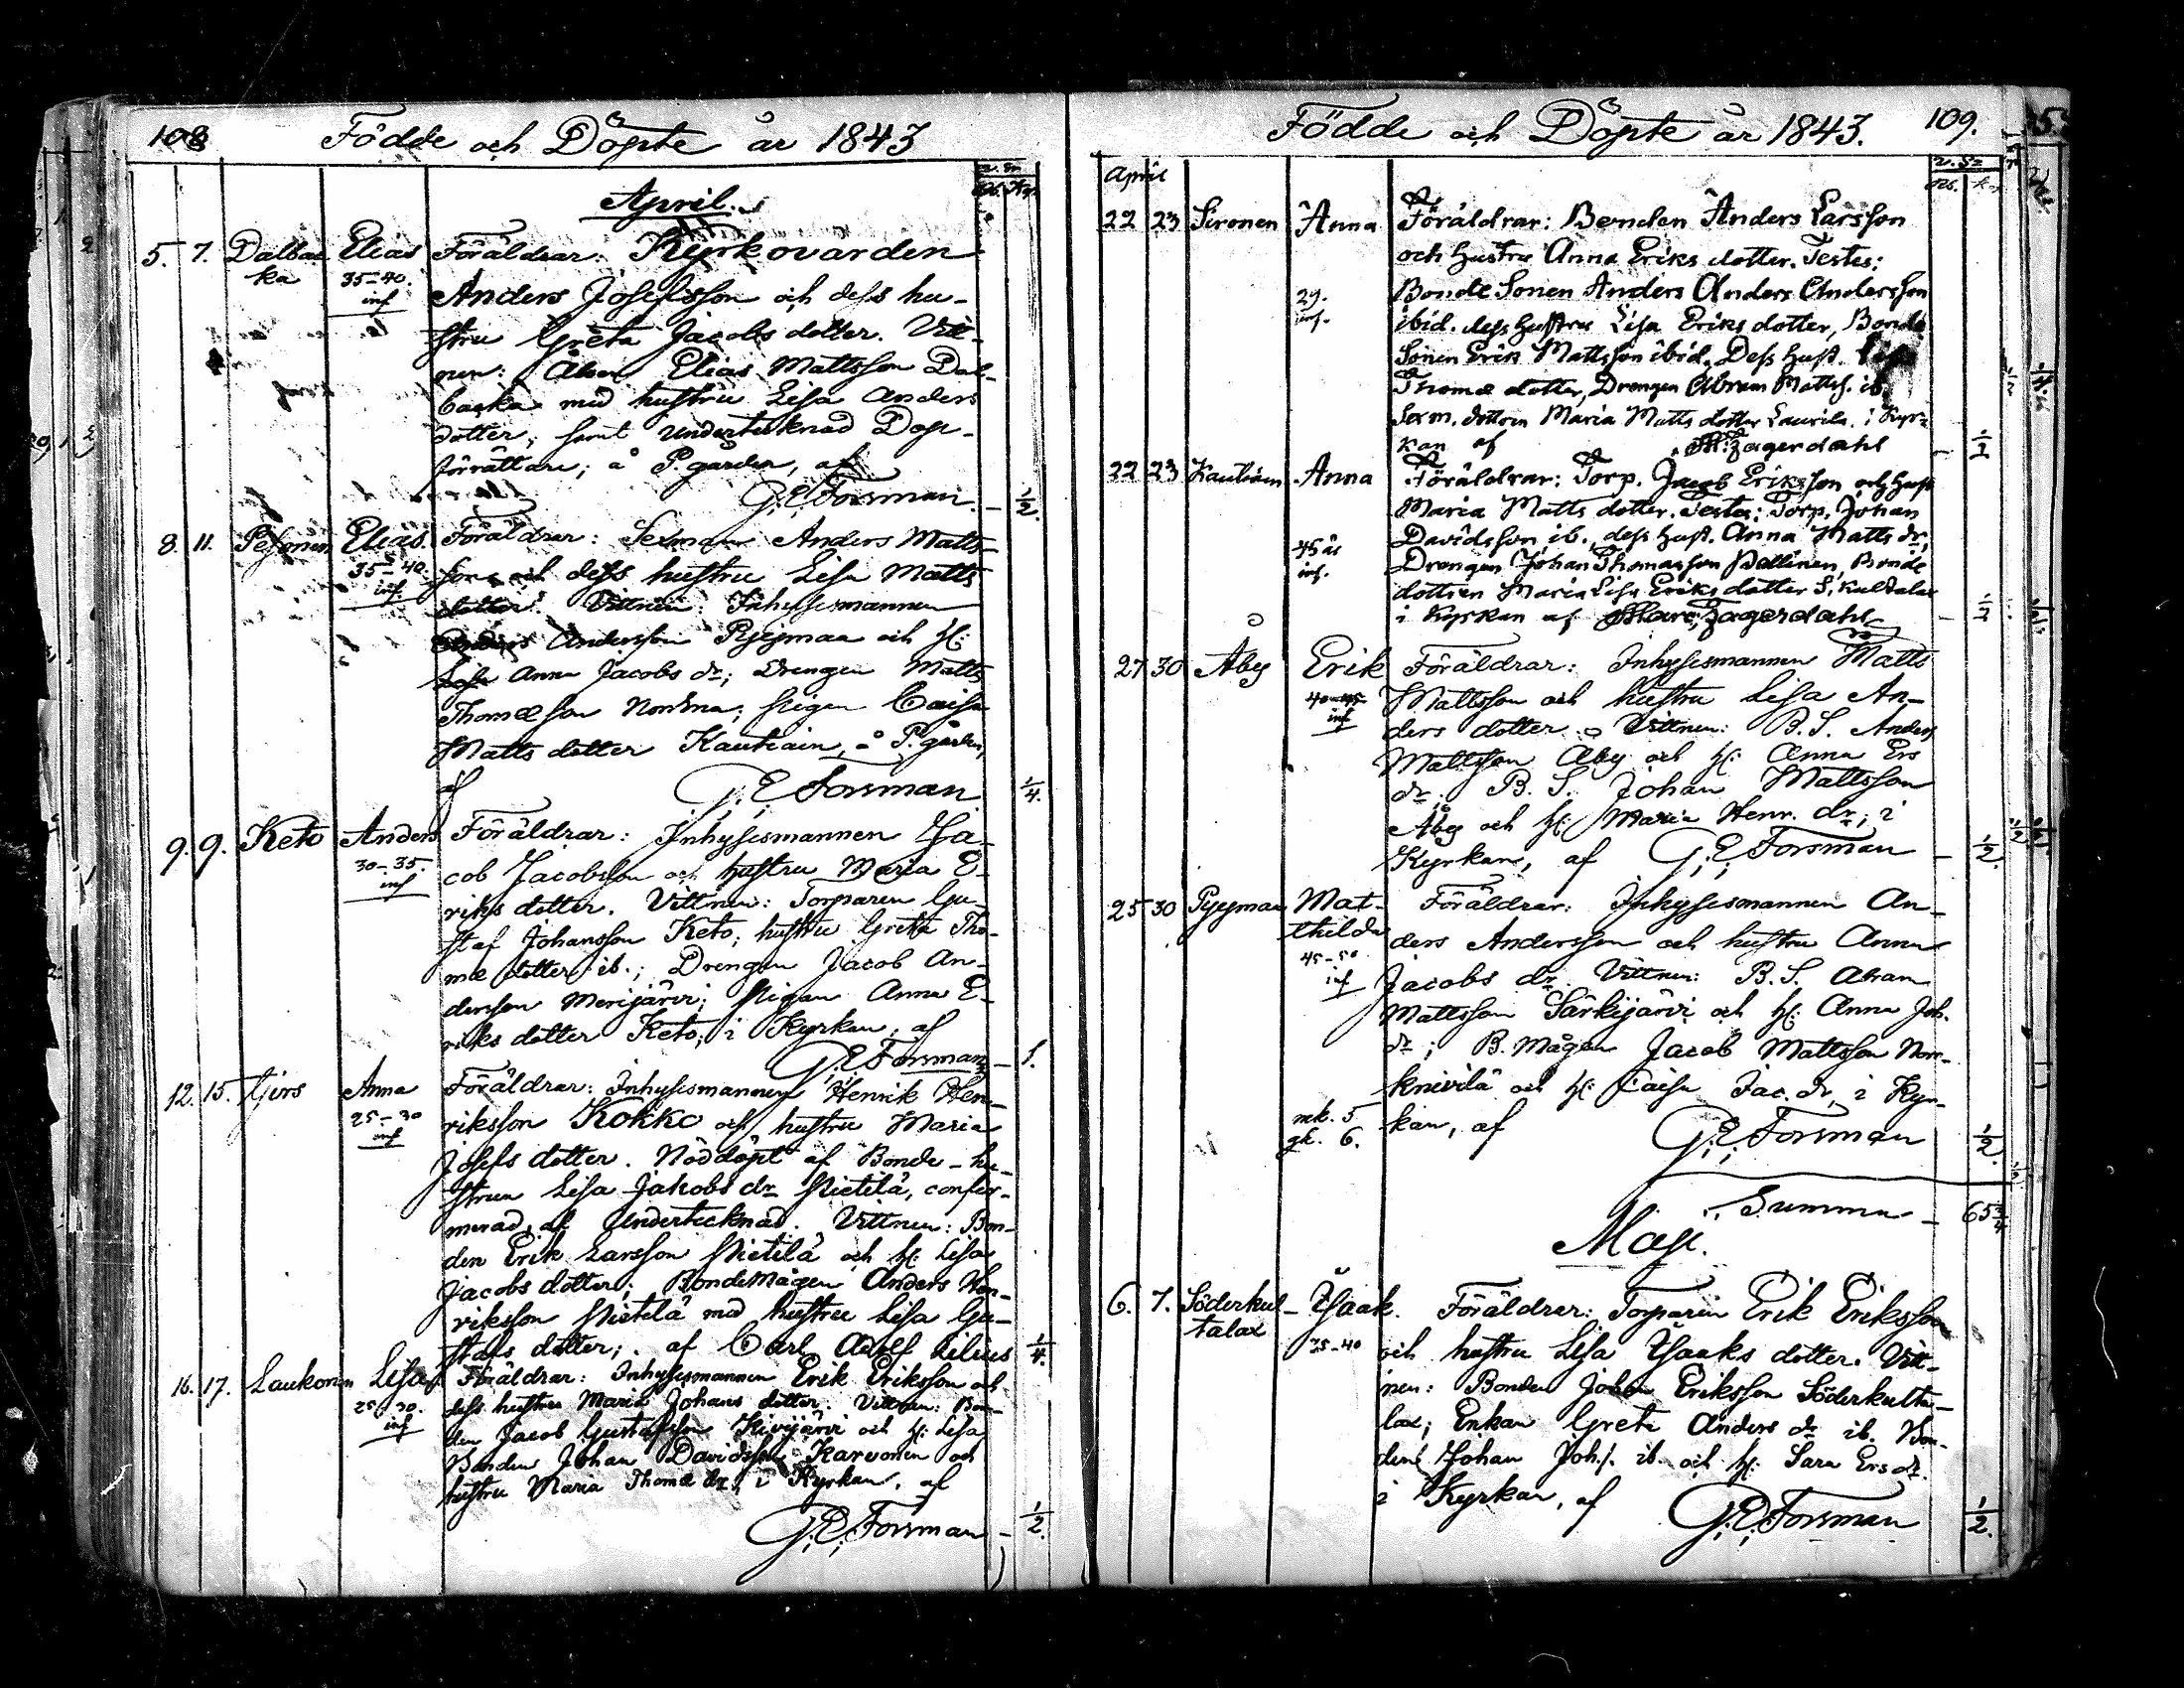 108 Födde och Döpte år 1843
R. Sr
Rb. Kop.
April.
5. 7. Dalbac Elias Föräldrar: Kyrkovärden
ka 35-40. Anders Josefsson och dess hu-
inf
stru Greta Jacobs dotter. Vitt-
nen: Åbon Elias Mattsson Dal-
backa med hustru Lisa Anders
dotter, samt undertecknad Dop-
förrättare; å P. gården, af
G. E. Forsman. - 1/2.
8. 11. Pesonen Elias Föräldrar: Sexman Anders Matts-
35-40. son och dess hustru Lisa Matts
inf.
dotter. Vittnen: Inhysesmannen
Anders Andersson Pyymaa och H:
Lisa Anna Jacobs dr; Drengen Matts
Thomæson Norrena; Pigan Caisa
Matts dotter Kautiain, å P. gården,
af G. E. Forsman 1/4.
9. 9. Keto Anders Föräldrar: Inhysesmannen Ja-
30-35. cob Jacobsson och hustru Maria E-
inf
riks dotter. Vittnen: Torparen Gu-
staf Johansson Keto; hustru Greta Tho-
mæ dotter ib.; Drengen Jacob An-
dersson Merijärvi; Pigan Anna E-
riks dotter Keto; i Kyrkan, af
G. E. Forsman - 1.
12. 15. Anna Föräldrar: Inhysesmannen Henrik Hen-
25-30 riksson Kokko och hustru Maria
inf
Josefs dotter. Nöddöpt af Bonde-hu-
strun Lisa Jakobs dr Pietilä, confir-
merad af Undertecknad. Vittnen: Bon-
den Erik Larsson Pietilä och H: Lisa
Jacobs dotter; Bondemågen Anders Hen-
riksson Pietilä med hustru Lisa Gu-
stafs dotter; af Carl Adolf Lilius 1/4.
16. 17. Laukonen Lisa Föräldrar: Inhysesmannen Erik Eriksson och
25-30. dess hustru Maria Johans dotter. Vittnen: Bon-
inf
den Jacob Gustafsson Kivijärvi och H: Lisa
Bonden Johan Davidsson Karvonen och
hustru Maria Thomæ dr, i Kyrkan, af
G. E. Forsman - 1/2.
Födde och Döpte år 1843. 109.
April
R. Sr
Rb. Kop
22 23 Sironen Anna Föräldrar: Bonden Anders Larsson
och hustru Anna Eriks dotter. Testes:
29. Bonde Sonen Anders Anders Andersson
inf.
ibid. dess hustru Lisa Eriks dotter, Bonde
Sonen Erik Mattsson ibid. Dess hust. Lisa
Thomæ dotter, Drengen Abram Matts. ib.
Sexm. dottern Maria Matts dotter Laurila. i Kyr-
kan af Zagerdahl - 1/2
22 23 Kautiain Anna Föräldrar: Torp. Jacob Eriksson och hust
Maria Matts dotter. Testes: Torp. Johan
45 år Davidsson ib., dess hust. Anna Matts dr,
inf. Drengen Johan Thomasson Pollinen, Bonde
dottren Maria Lisa Eriks dotter S. Kultalax
i Kyrkan af Zagerdahl - 1/2
27 30 Åby Erik Föräldrar: Inhysesmannen Matts
40-45 Mattsson och hustru Lisa An-
inf
ders dotter. Vittnen: B. S. Anders
Mattsson Åby och H: Anna Ers
dr; B. S. Johan Mattsson
Åby och H: Maria Henr. dr; i
Kyrkan, af G. E. Forsman - 1/2.
25 30 Pyymaa Mat- Föräldrar: Inhysesmannen An-
thilda ders Andersson och hustru Anna
45-50 Jacobs dr. Vittnen: B. S. Abram
inf
Mattsson Särkijärvi och H: Anna Joh.
dr; B. Mågen Jacob Mattsson Norr-
knivilä och H: Caisa Jac. dr, i Kyr-
mk. 5 kan, af G. E. Forsman 1/2.
gk. 6.
Summa - 65 3/4
Maji.
6. 7. Söderkul- Isaak. Föräldrar: Torparen Erik Eriksson
talax 35-40 och hustru Lisa Isaaks dotter. Vitt-
nen: Bonden Johan Eriksson Söderkulta-
lax; Enkan Greta Anders dr ib. Bon-
den Johan Joh.s. ib. och H: Sara Ers dr.
i Kyrkan, af G. E. Forsman 1/2.